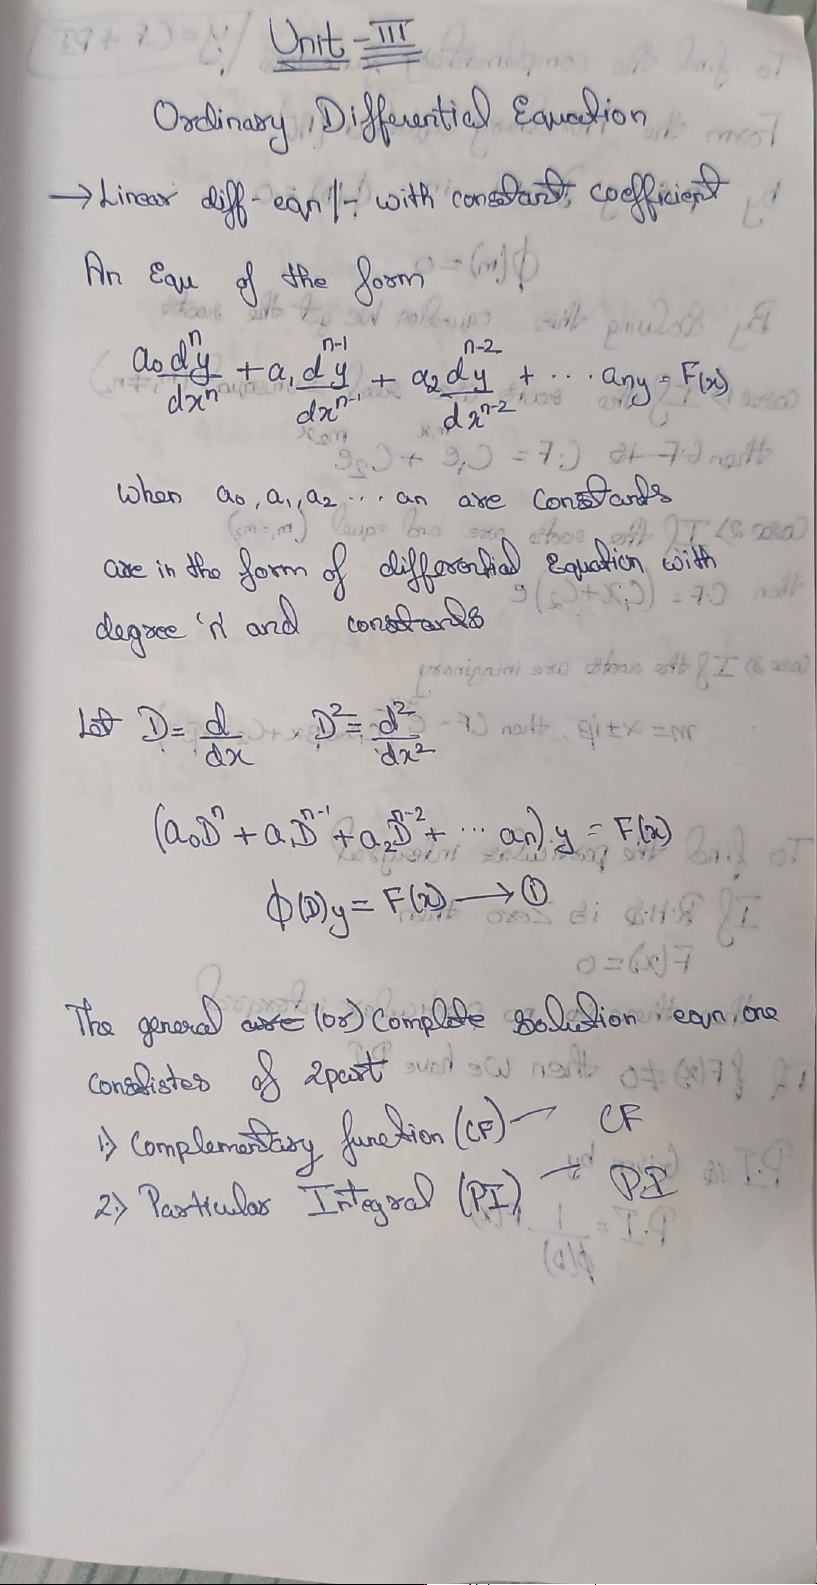 Unit - III
Ordinary Differential Equation
→ Linear diff- eqn/- with constant coefficient
An Equ of the form
a₀ dⁿy/dxⁿ + a₁ dⁿ⁻¹y/dxⁿ⁻¹ + a₂ dⁿ⁻²y/dxⁿ⁻² + ... any = F(x)
when a₀, a₁, a₂ ... an are constants
are in the form of differential Equation with
degree 'n' and constants
Let D = d/dx , D² = d²/dx²
(a₀Dⁿ + a₁Dⁿ⁻¹ + a₂Dⁿ⁻² + ... an) y = F(x)
ϕ(D)y = F(x) → ①
The general are (or) Complete solution eqn one
consistes of 2part
1.) Complementary function (CF) — CF
2.) Particular Integral (PI) — P.I